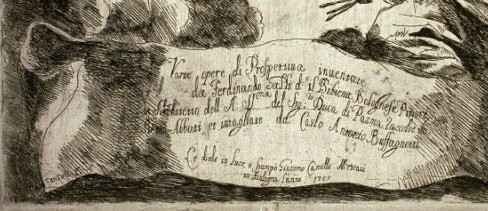 Varie opere di Prospettiua inventate
da Ferdinando Galli d.º il Bibiena Bolognese Pittore
Architetto dell' A. Sma del Sig. Duca di Parma
Abbati, et intagliate da Carlo Antonio Buffagnotti
diede in Luce e Stampò Giacomo Camillo Mercati
in Bologna l'anno 1707